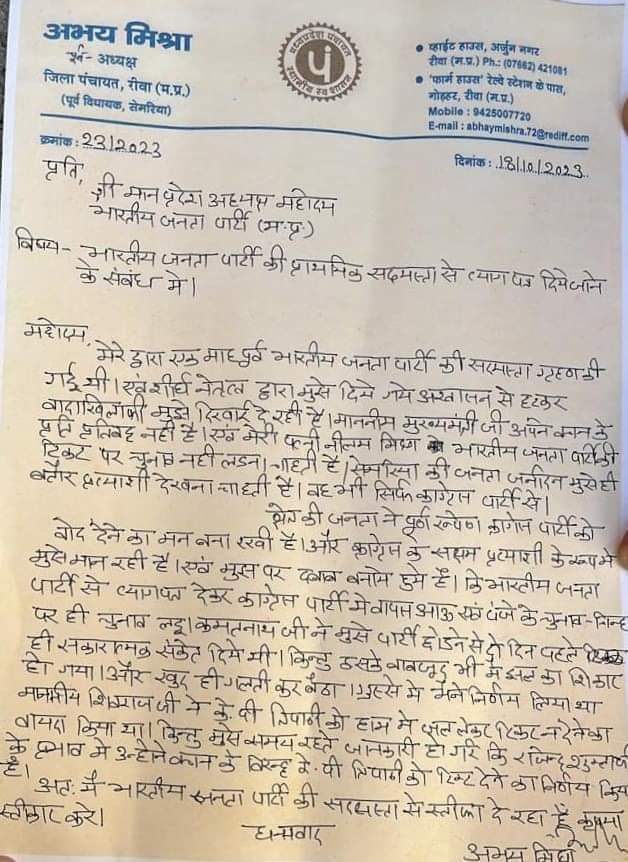 अभय मिश्रा
पूर्व- अध्यक्ष
जिला पंचायत, रीवा (म.प्र.)
(पूर्व विधायक, सेमरिया)
मध्यप्रदेश पंचायत
पं
स्थानीय स्व शासन
• व्हाईट हाउस, अर्जुन नगर
रीवा (म.प्र.) Ph.: (07662) 421081
• 'फार्म हाउस' रेल्वे स्टेशन के पास,
गोड़हर, रीवा (म.प्र.)
Mobile : 9425007720
E-mail : abhaymishra.72@rediff.com
क्रमांक : 23/2023
दिनांक : 18/10/2023
प्रति,
श्री मान प्रदेश अध्यक्ष महोदय
भारतीय जनता पार्टी (म.प्र.)
विषय- भारतीय जनता पार्टी की प्राथमिक सदस्यता से त्याग पत्र दिये जाने
के संबंध मे।
महोदय,
मेरे द्वारा एक माह पूर्व भारतीय जनता पार्टी की सदस्यता ग्रहण की
गई थी। एवं शीर्ष नेतृत्व द्वारा मुझे दिये गये आश्वासन से हटकर
वादाखिलाफी मुझे दिखाई दे रही है। माननीय मुख्यमंत्री जी अपने कथन के
प्रति प्रतिबद्ध नही है। एवं मेरी पत्नी नीलम मिश्रा भारतीय जनता पार्टी की
टिकट पर चुनाव नही लडना चाहती है। सेमरिया की जनता जनार्दन मुझे ही
बतौर प्रत्याशी देखना चाहती है। वह भी सिर्फ कांग्रेस पार्टी से।
क्षेत्र की जनता ने पूर्ण रूपेण कांग्रेस पार्टी को
वोट देने का मन बना रखी है। और कांग्रेस के सक्षम प्रत्याशी के रूप मे
मुझे मान रही है। एवं मुझ पर दबाव बनाये हुये है। कि भारतीय जनता
पार्टी से त्यागपत्र देकर कांग्रेस पार्टी मे वापस आऊ एवं पंजे के चुनाव-चिन्ह
पर ही चुनाव लडू। कमलनाथ जी ने मुझे पार्टी छोडने से दो दिन पहले
ही सकारात्मक संकेत दिये थे। किन्तु उसके बावजूद भी मै छल का शिकार
हो गया। और खुद ही गलती कर बैठा। गुस्से मे मैने निर्णय लिया था
माननीय शिवराज जी ने के. पी त्रिपाठी को हाथ मे जल लेकर टिकट न देने का
वायदा किया था। किन्तु मुझे समय रहते जानकारी हो गई कि राजेन्द्र शुक्ला
के प्रभाव मे उन्होने कथन के विरुद्ध के. पी त्रिपाठी को टिकट देने का निर्णय किया
है।
अतः मै भारतीय जनता पार्टी की सदस्यता से स्तीफा दे रहा हूँ कृपया
स्वीकार करे।
धन्यवाद
अभय मिश्रा